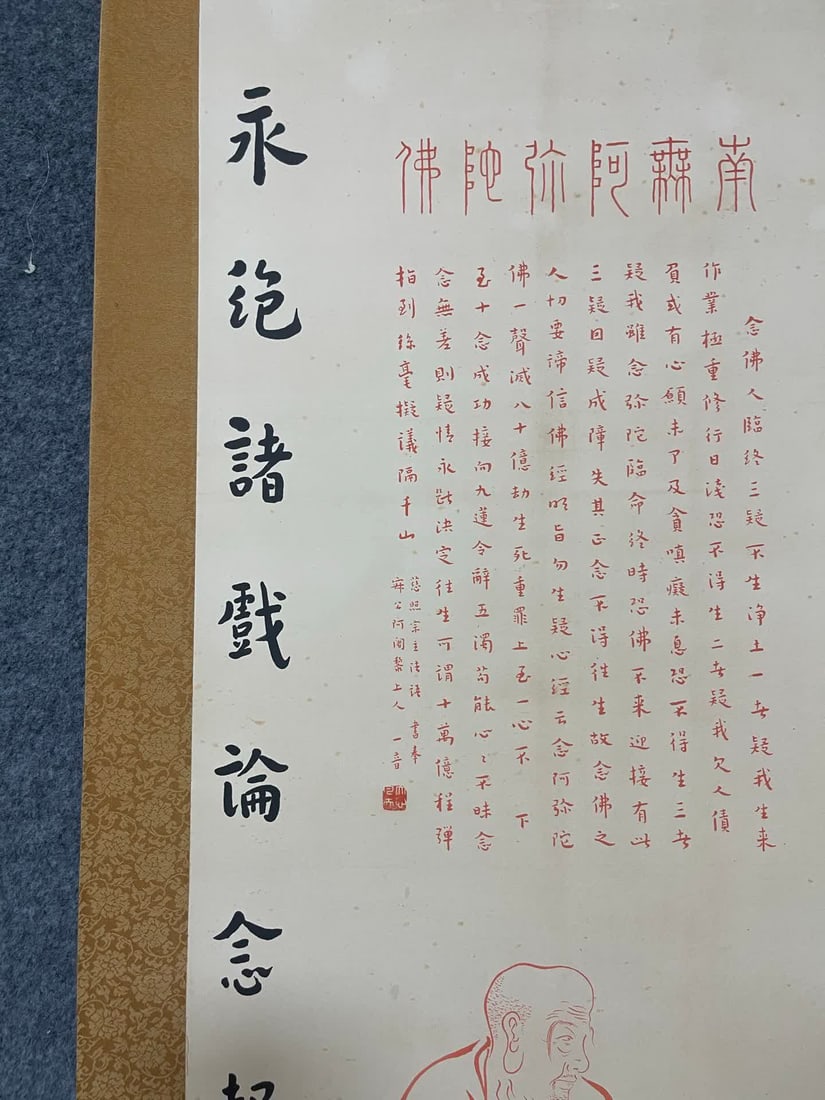 南無阿弥陀佛
念佛人臨終三疑不生淨土一者疑我生来
作業極重修行日淺恐不得生二者疑我欠人債
負或有心願未了及貪嗔癡未息恐不得生三者
疑我雖念弥陀臨命終時恐佛不来迎接有此
三疑因疑成障失其正念不得往生故念佛之
人切要諦信佛經明旨勿生疑心經云念阿弥陀
佛一聲滅八十億劫生死重罪上至一心不 下
至十念成功接向九蓮令辭五濁苟能心々不昧念
念無差則疑情永斷決定往生可謂十萬億程彈
指到絲毫擬議隔千山
慈照宗主法語 書奉
寂公阿闍黎上人 一音
永絕諸戲論念